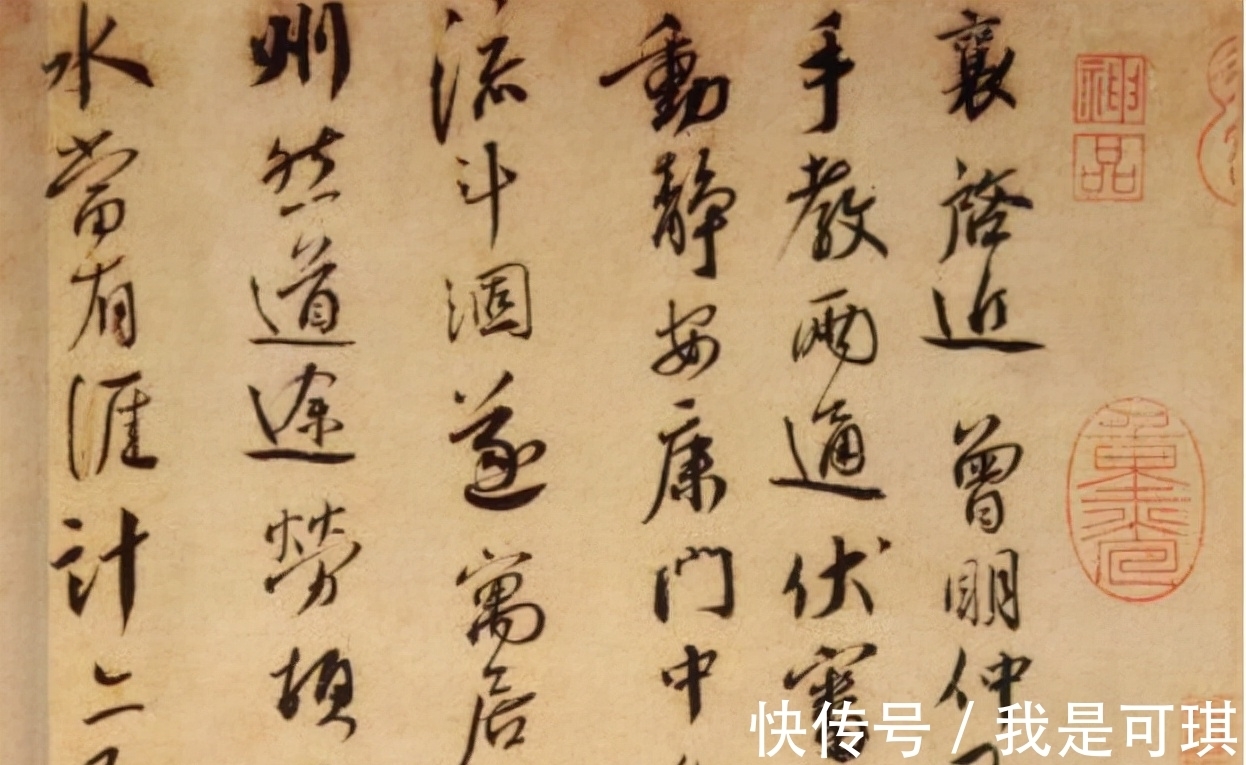 襄啓近曾明仲
手教兩通伏審
動靜安康門中
流斗涸遂寓居
州然道途勞頓
水當有涯計亦
神品
快传号/我是可琪